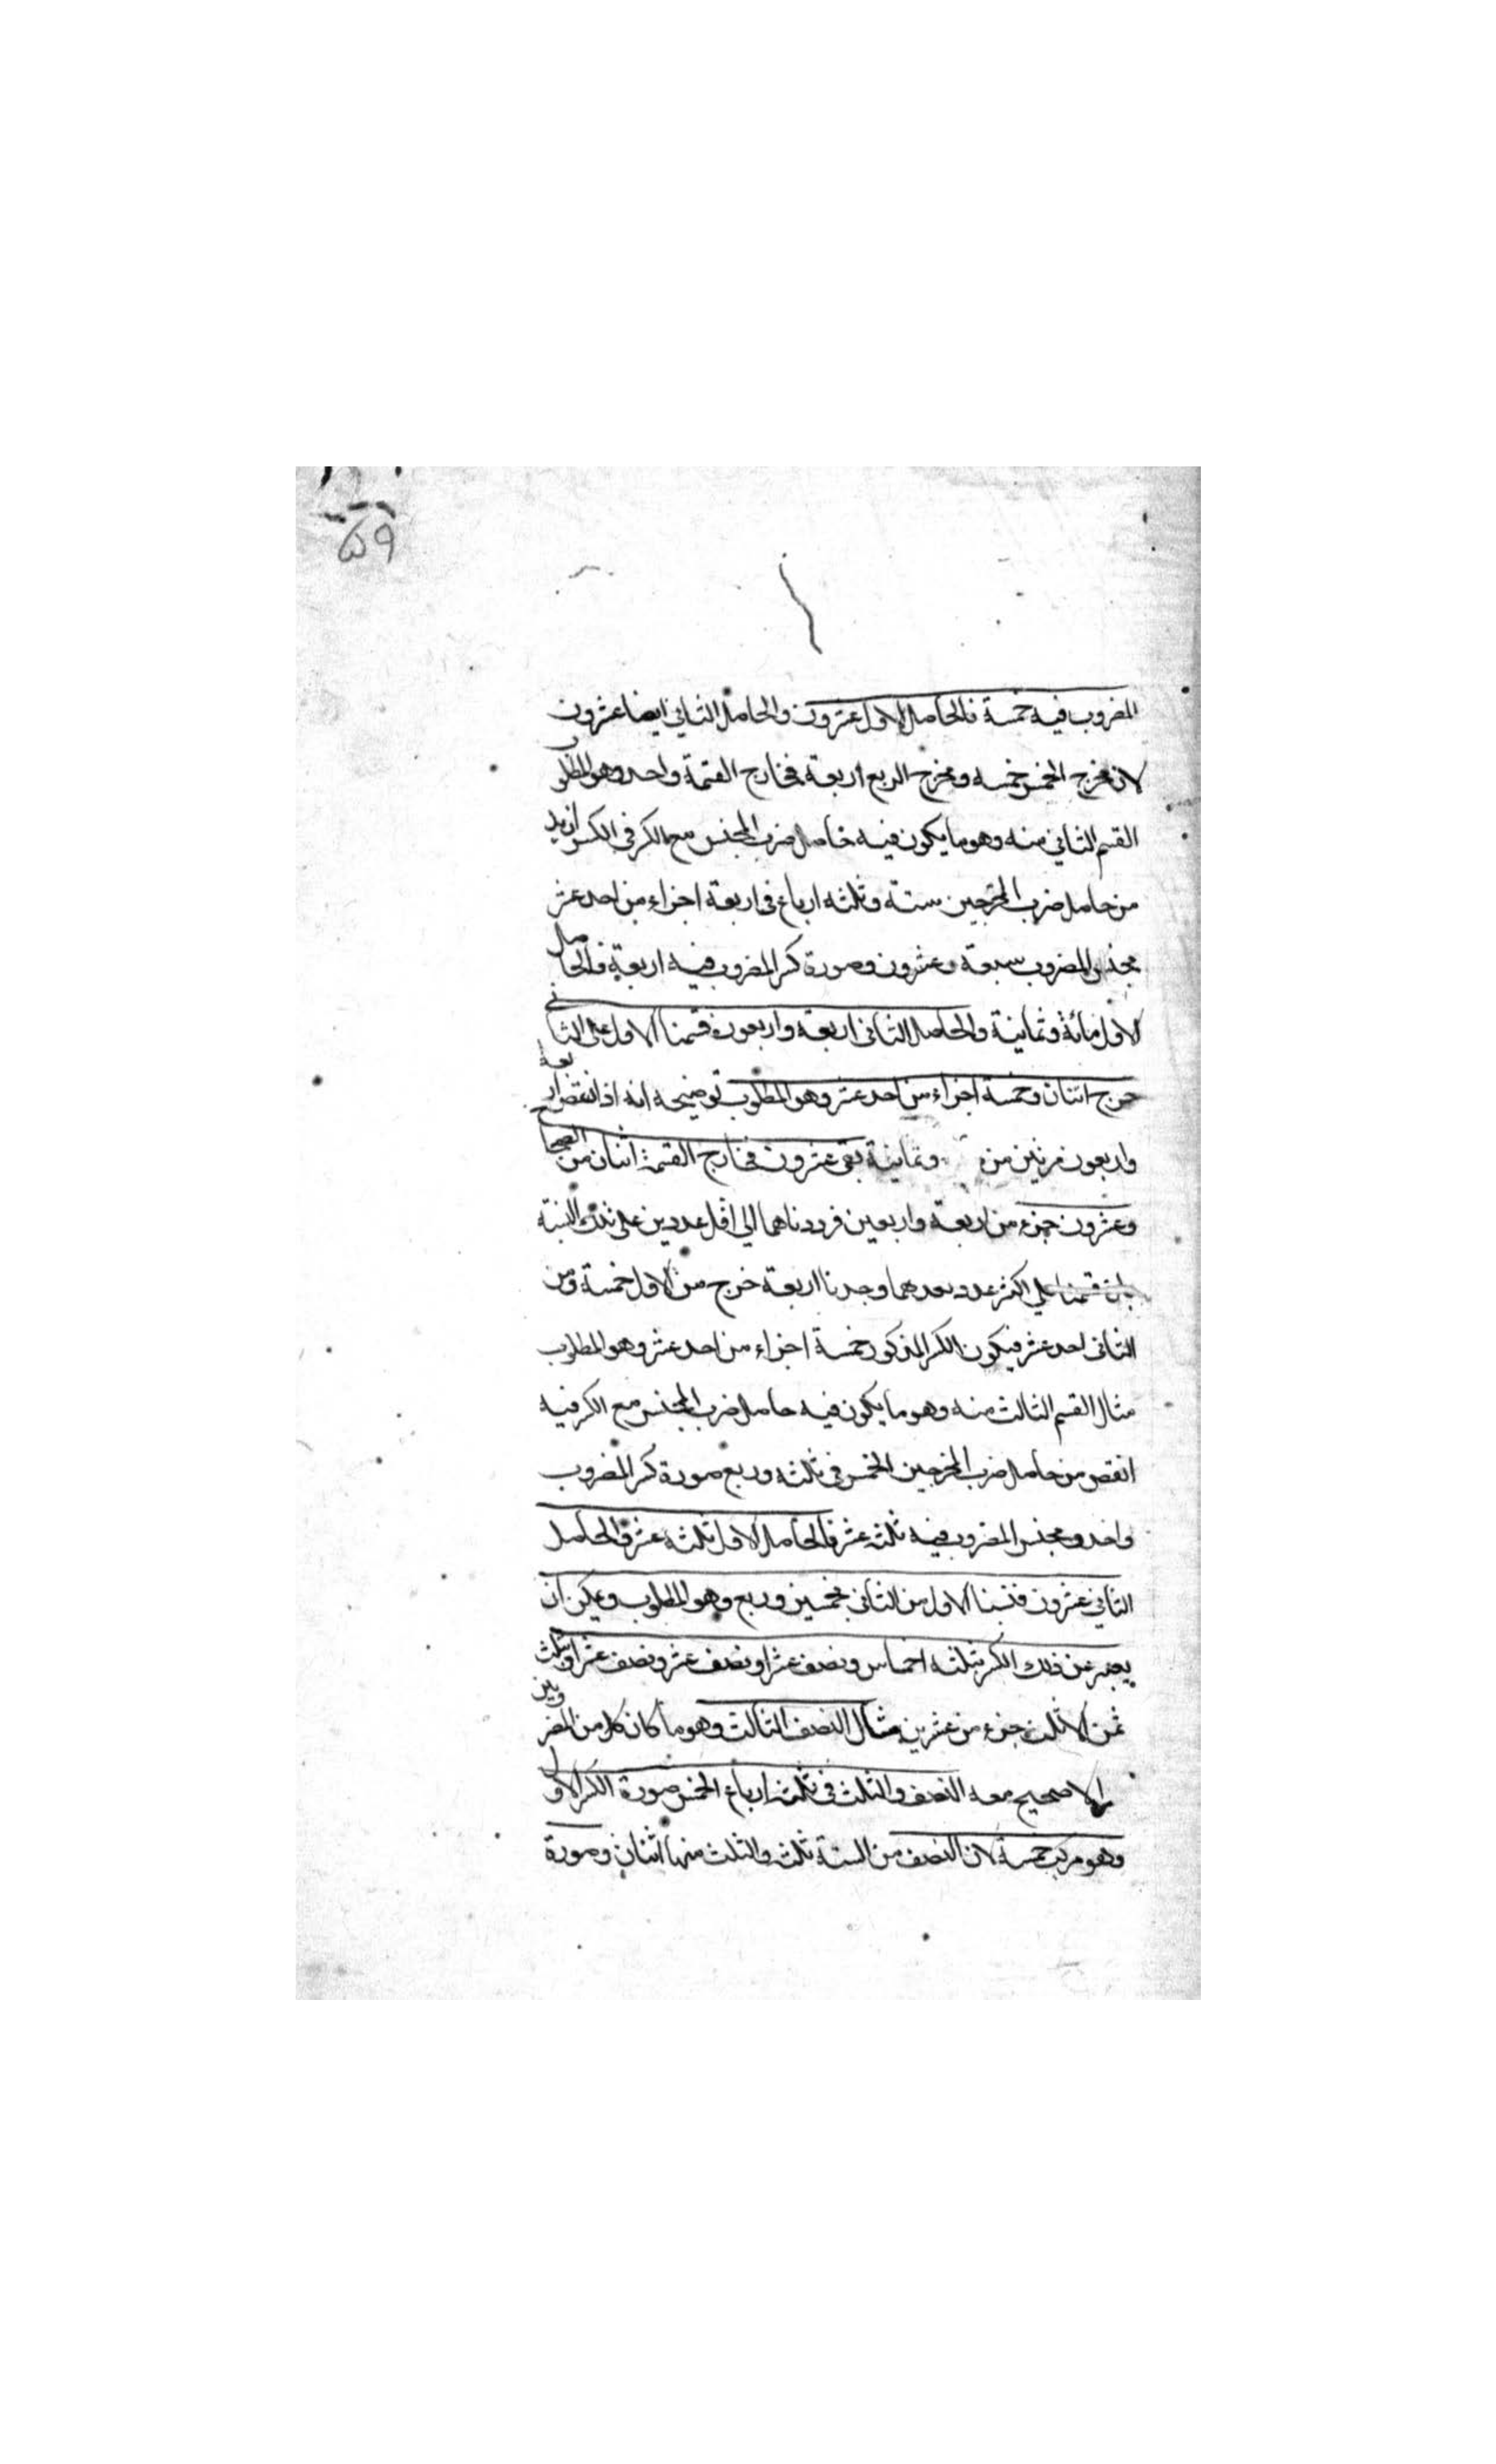 ٥٩
المضروب فيه خمسة فالحاصل الاول عشرون والحاصل الثاني ايضا عشرون
لان مخرج الخمس خمسه ومخرج الربع اربعة فخارج القسمة واحد وهو المطلو
القسم الثاني منه وهو ما يكون فيه حاصل ضرب المجنس مع الكسر في الكسر ازيد
من حاصل ضرب المخرجين ستة وثلثه ارباع في اربعة اجزاء من احد عشر
مجنس المضروب سبعة وعشرون وصورة كسر المضروب فيه اربعة فالحاصل
الاول مائة وثمانية والحاصل الثاني اربعة واربعون قسمنا الاول على الثاني
خرج اثنان وخمسة اجزاء من احد عشر وهو المطلوب توضيحه انه اذا نقص اربعة
واربعون مرتين من وثمانية بقي عشرون فخارج القسمة اثنان من الصحاح
وعشرون جزء من اربعة واربعين فرددناهما الي اقل عددين على تلك النسبة
بان قسمنا علي اكثر عدد بعدهما وجدنا اربعة خرج من الاول خمسة ومن
الثاني احد عشر فيكون الكسر المذكور خمسة اجزاء من احد عشر وهو المطلوب
مثال القسم الثالث منه وهو ما يكون فيه حاصل ضرب المجنس مع الكسر فيه
انقص من حاصل ضرب المخرجين الخمس في ثلثه وربع صورة كسر المضروب
واحد ومجنس المضروب فيه ثلثه عشر فالحاصل الاول ثلثه عشر والحاصل
الثاني عشرون فنسبنا الاول من الثاني بخمسين وربع وهو المطلوب ويمكن ان
يعبر عن ذلك الكسر بثلثه اخماس ونصف عشر او نصف عشر ونصف عشر او بثلث
ثمن الا ثلث جزء من عشرين مثال النصف الثالث وهو ما كان كل من المضروبين
الا صحيح معه النصف والثلث في ثلثه ارباع الخمس صورة الكسر الاول
وهو مركب خمسة لان النصف من الستة ثلثه والثلث منها اثنان وصورة